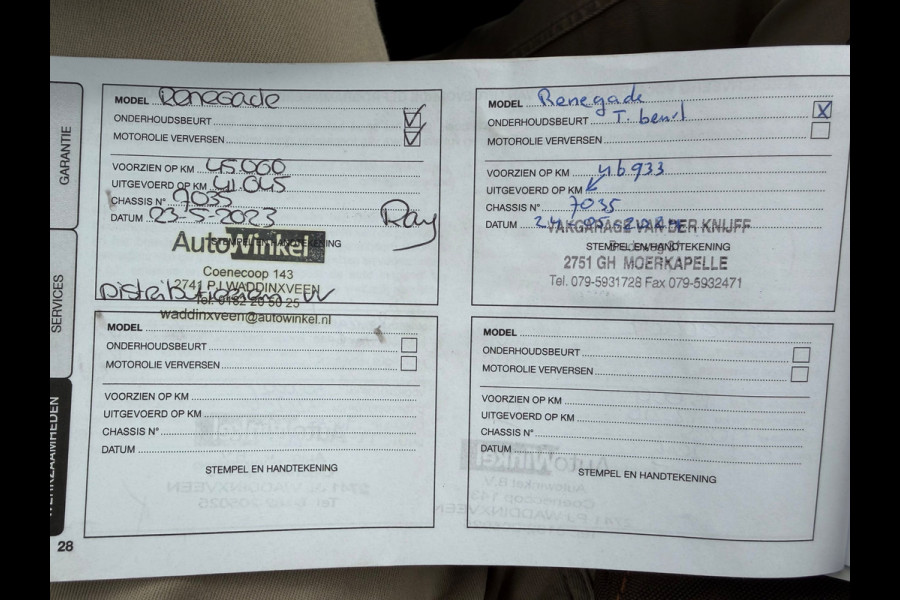 GARANTIE
SERVICES
WERKZAAMHEDEN
MODEL Renegade
ONDERHOUDSBEURT
MOTOROLIE VERVERSEN
VOORZIEN OP KM 45060
UITGEVOERD OP KM 41045
CHASSIS N° 7035
DATUM 23-5-2023
Ray
STEMPEL EN HANDTEKENING
AutoWinkel
Coenecoop 143
2741 PJ WADDINXVEEN
Tel. 0182 20 50 25
waddinxveen@autowinkel.nl
MODEL Renegade
ONDERHOUDSBEURT T. beurt
MOTOROLIE VERVERSEN
VOORZIEN OP KM 46933
UITGEVOERD OP KM
CHASSIS N° 7035
DATUM
VAKGARAGE VAN DER KNIJFF
STEMPEL EN HANDTEKENING
2751 GH MOERKAPELLE
Tel. 079-5931728 Fax 079-5932471
MODEL
ONDERHOUDSBEURT
MOTOROLIE VERVERSEN
VOORZIEN OP KM
UITGEVOERD OP KM
CHASSIS N°
DATUM
STEMPEL EN HANDTEKENING
MODEL
ONDERHOUDSBEURT
MOTOROLIE VERVERSEN
VOORZIEN OP KM
UITGEVOERD OP KM
CHASSIS N°
DATUM
STEMPEL EN HANDTEKENING
28